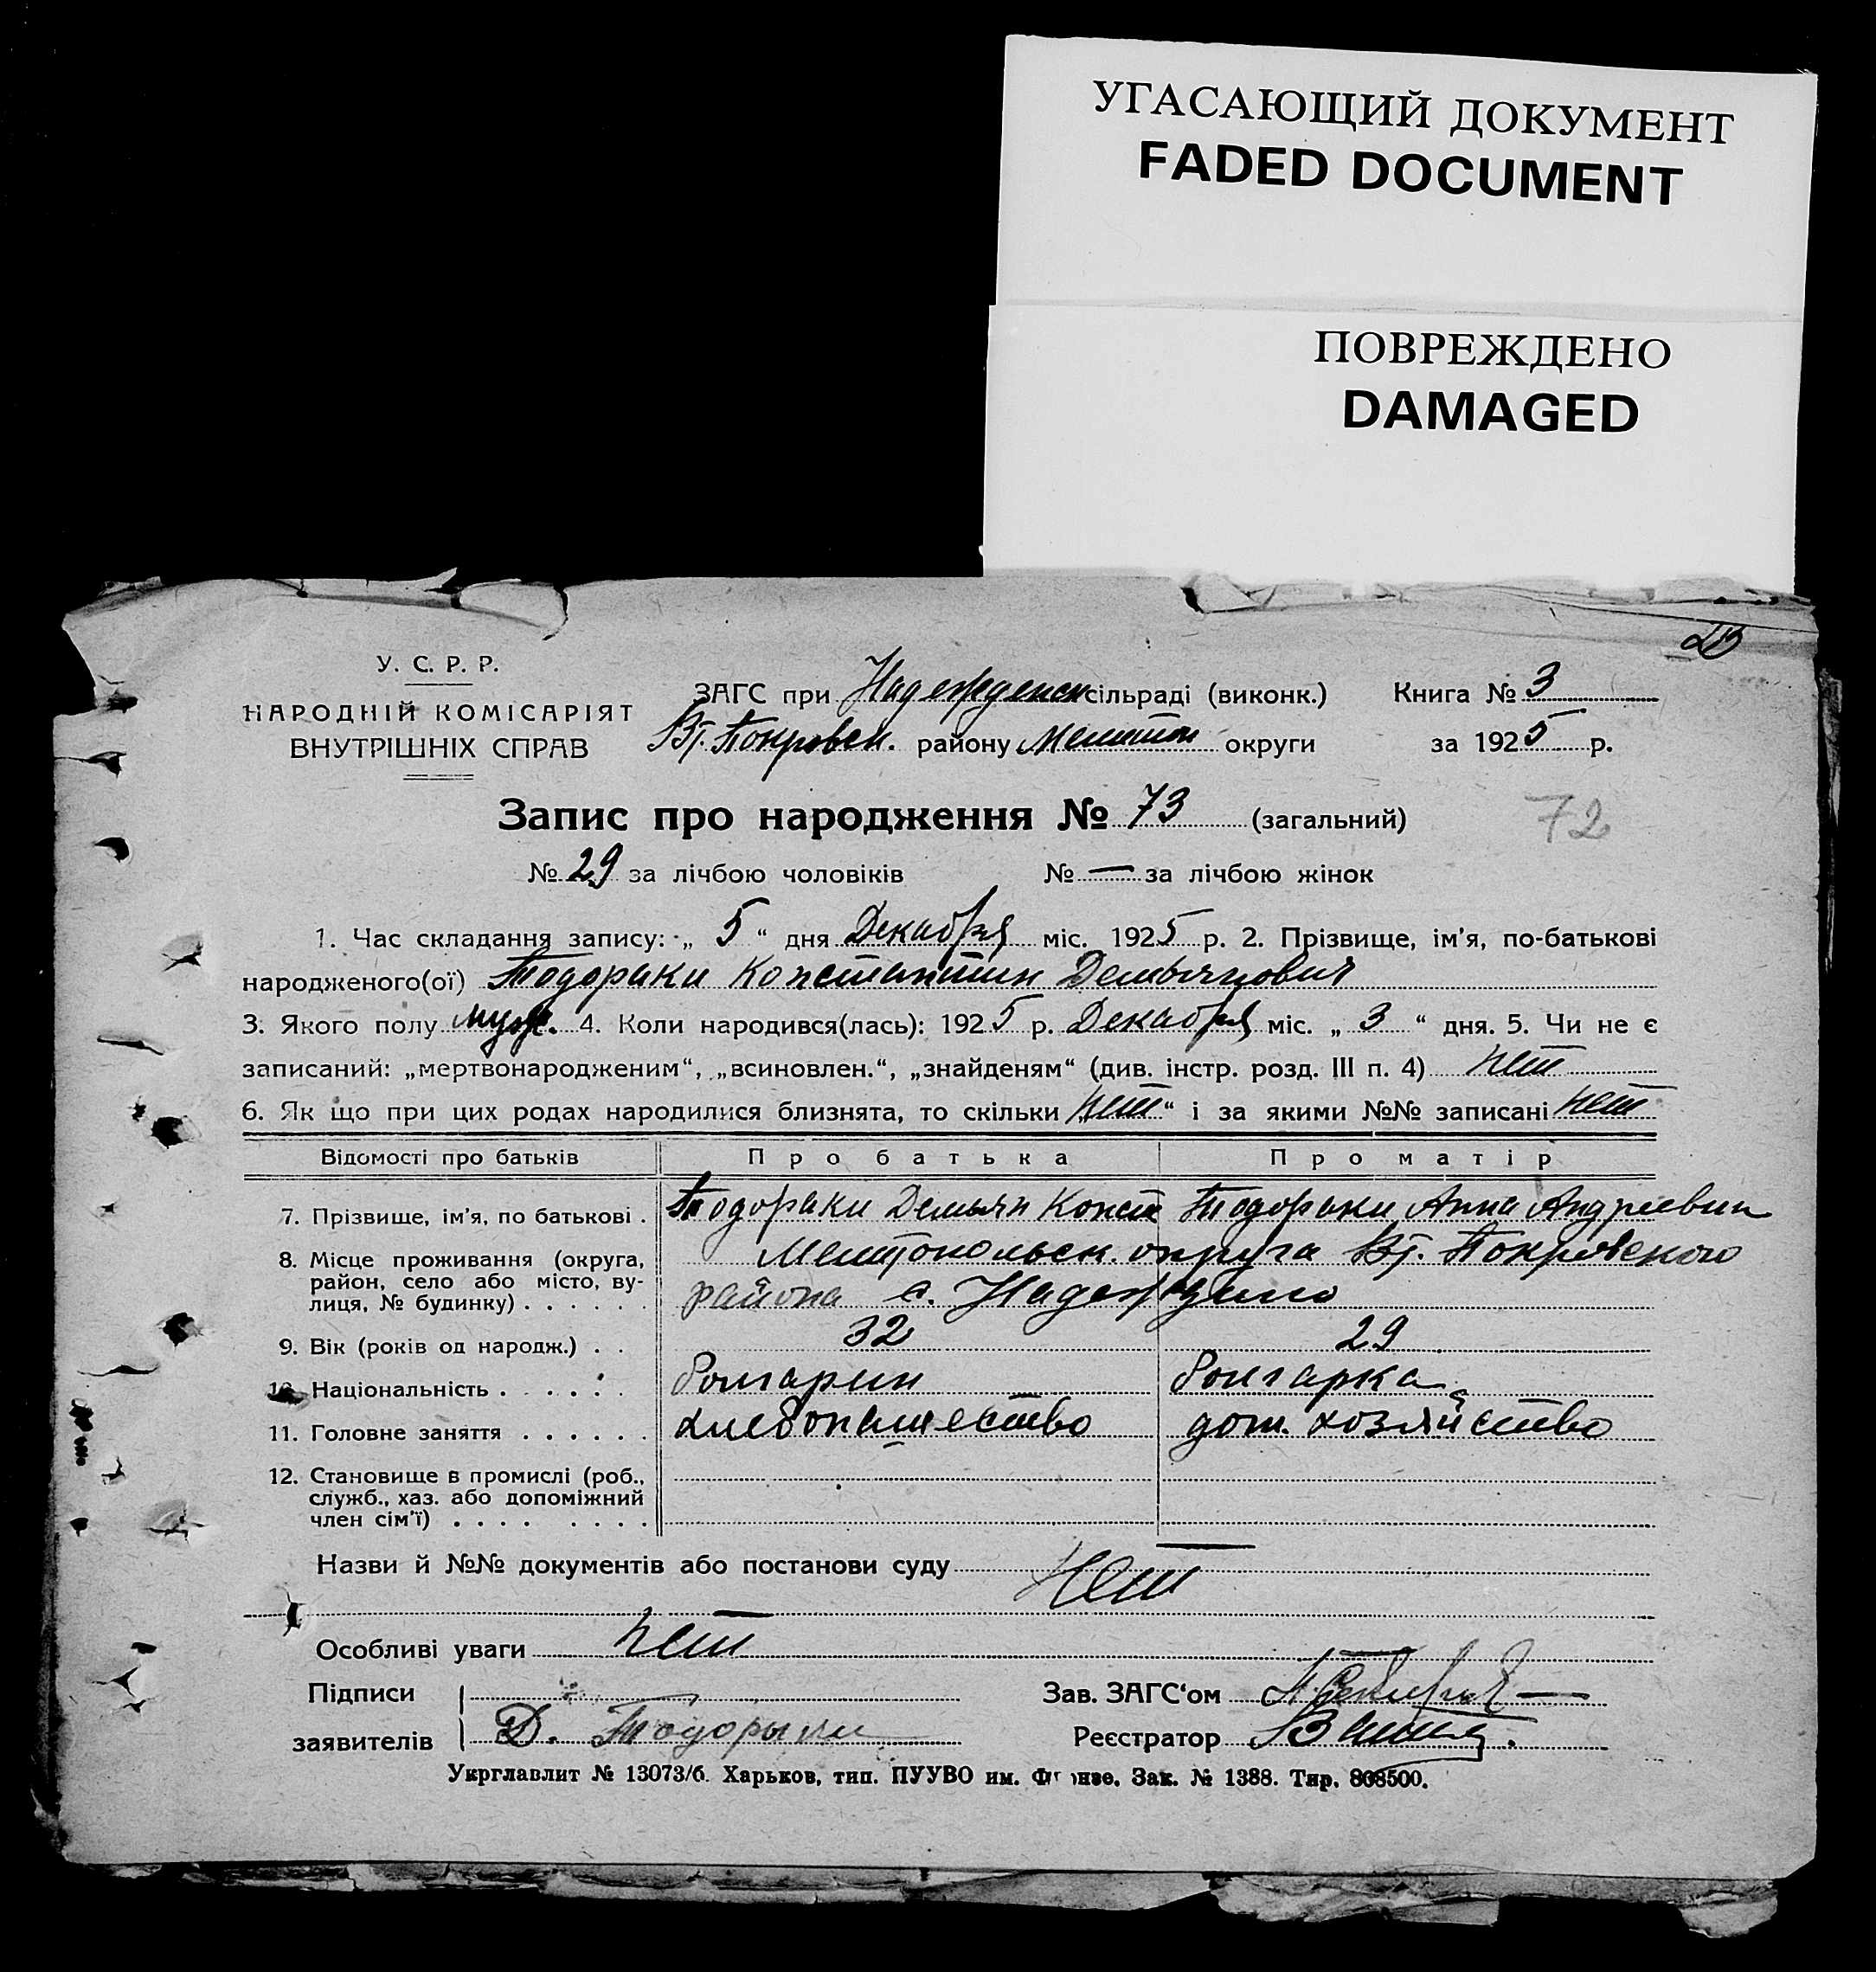 УГАСАЮЩИЙ ДОКУМЕНТ
FADED DOCUMENT
ПОВРЕЖДЕНО
DAMAGED
У. С. Р. Р.
НАРОДНІЙ КОМІСАРІЯТ
ВНУТРІШНІХ СПРАВ
ЗАГС при Надежденск сільраді (виконк.) Книга № 3
Вт. Покровск. району Мелитоп округи за 1925 р.
Запис про народження № 73 (загальний)
72
№ 29 за лічбою чоловіків № — за лічбою жінок
1. Час складання запису: „ 5 “ дня Декабря міс. 1925 р. 2. Прізвище, ім’я, по-батькові
народженого(ої) Тодораки Константин Демьянович
3. Якого полу муж. 4. Коли народився(лась): 1925 р. Декабря міс. „ 3 “ дня. 5. Чи не є
записаний: „мертвонародженим“, „всиновлен.“, „знайденям“ (див. інстр. розд. III п. 4) нет
6. Як що при цих родах народилися близнята, то скільки нет “ і за якими №№ записані нет
Відомості про батьків Про батька Про матір
7. Прізвище, ім’я, по батькові . Тодораки Демьян Конст Тодораки Анна Андреевна
8. Місце проживання (округа, район, село або місто, вулиця, № будинку) . . . . . . Мелитопольск. округа Вт. Покровского
района с. Надеждино
9. Вік (років од народж.) . . 32 29
10. Національність . . . . . . болгарин болгарка
11. Головне заняття . . . . . . хлебопашество дом. хозяйство
12. Становище в промислі (роб.,
служб., хаз. або допоміжний
член сім’ї) . . . . . . . .
Назви й №№ документів або постанови суду Нет
Особливі уваги нет
Підписи Зав. ЗАГС‘ом
заявителів Д. Тодораки Реєстратор
Укрглавлит № 13073/б. Харьков, тип. ПУУВО им. Фрунзе. Зак. № 1388. Тир. 808500.